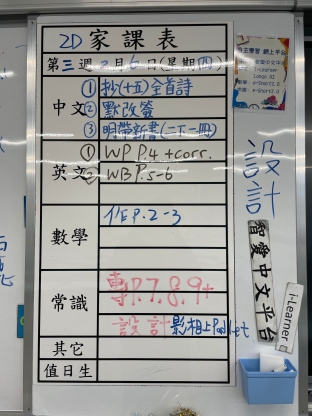 2D 家課表
第三週 2月6日(星期四)
中文 ① 抄(十五)全首詩
② 默改簽
③ 明帶新書(二下一冊)
英文 ① WP P.4 +corr.
② WB P.5-6
數學 作 P.2-3
常識 專P.7.8.9+
設計 影相上Padlet
其它
值日生
設計
智愛中文平台
i-Learner